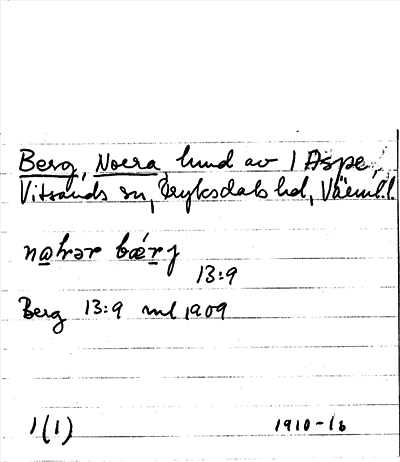 Berg, Norra, hmd av 1 Aspe,
Vitsands sn, Fryksdals hd, Värml.l.
bærj
13:9
Berg 13:9 ml 1909
1(1) 1910-16